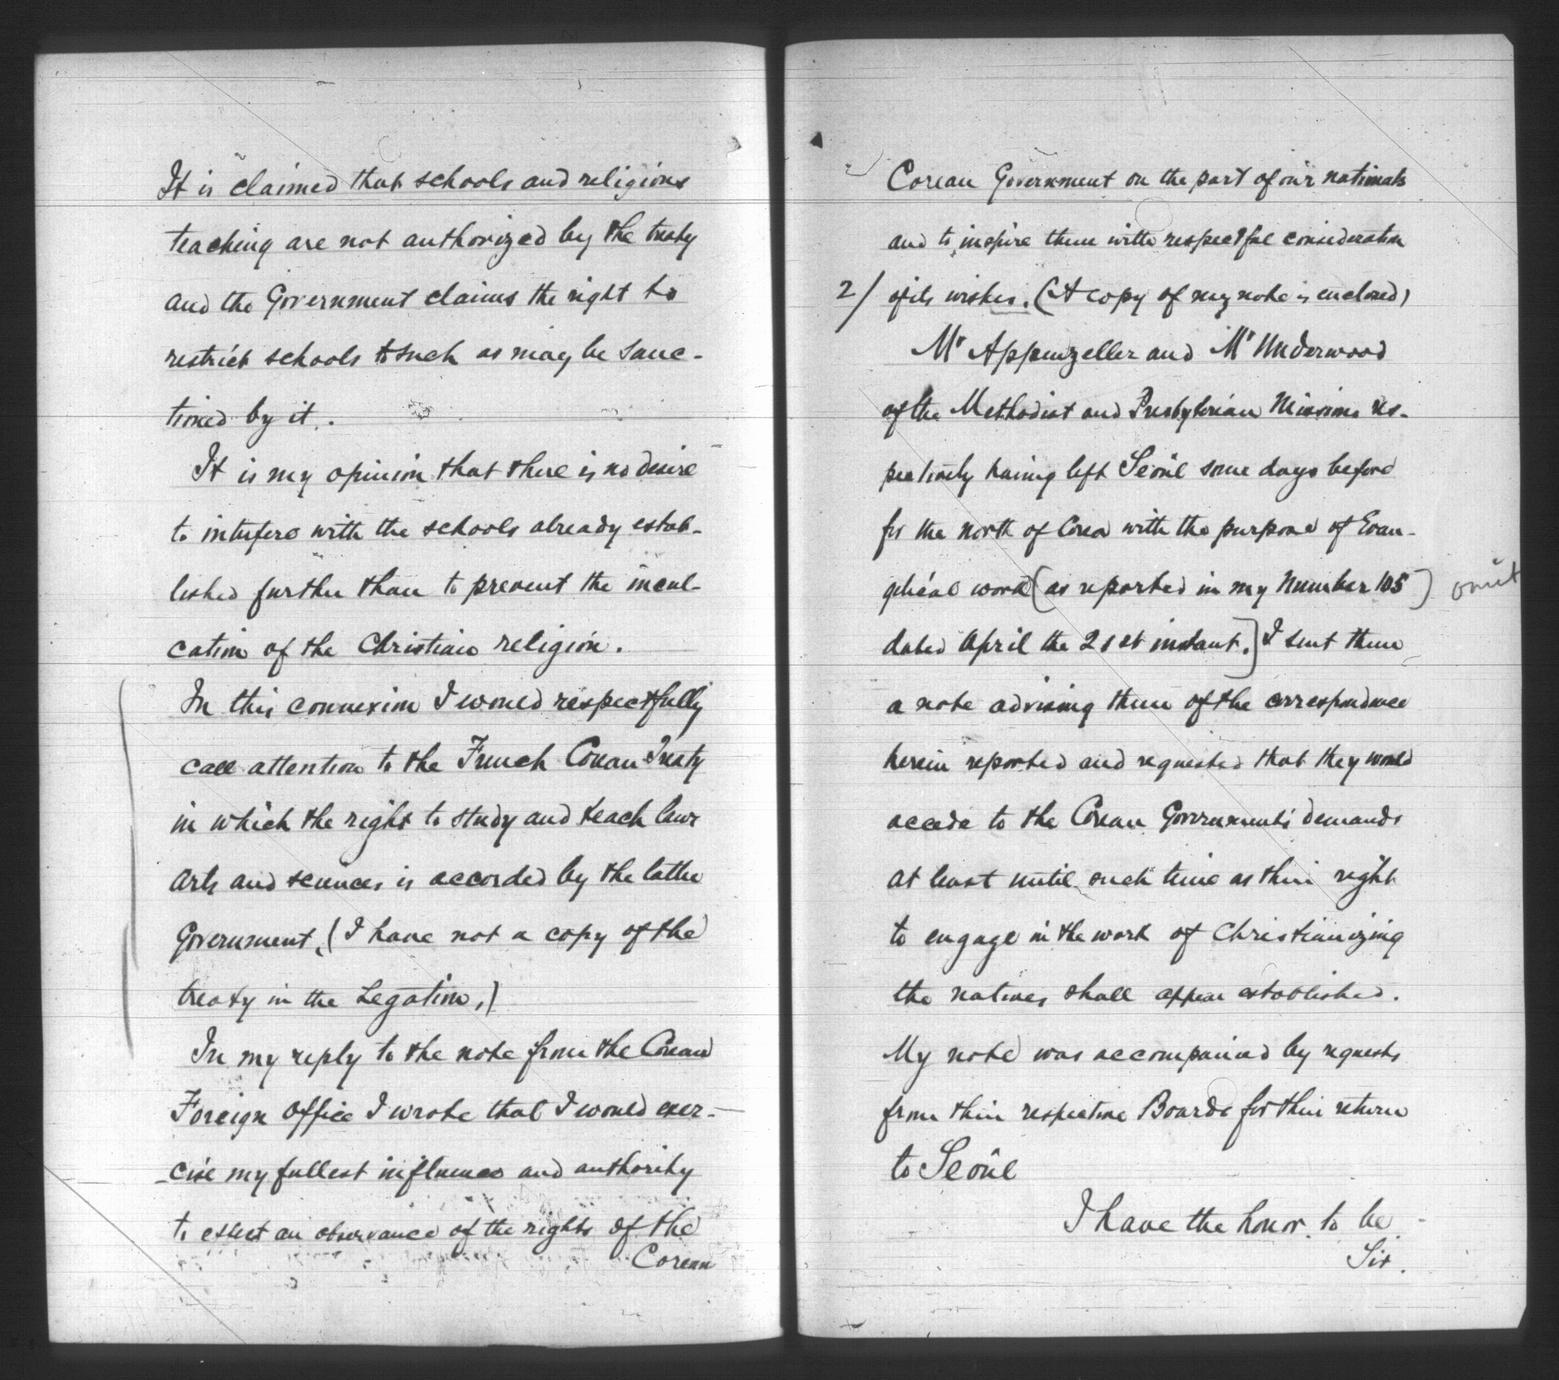 It is claimed that schools and religious
teaching are not authorized by the treaty
and the Government claims the right to
restrict schools to such as may be sanc-
tioned by it.
It is my opinion that there is no desire
to interfere with the schools already estab-
lished further than to prevent the incul-
cation of the Christian religion.
In this connexion I would respectfully
call attention to the French Corean Treaty
in which the right to study and teach laws
arts and sciences is accorded by the latter
Government, (I have not a copy of the
treaty in the Legation.)
In my reply to the note from the Corean
Foreign Office I wrote that I would exer-
-cise my fullest influence and authority
to effect an observance of the rights of the
Corean
Corean Government on the part of our nationals
and to inspire them with respectful consideration
2/ of its wishes. (A copy of my note is enclosed)
Mr Appenzeller and Mr Underwood
of the Methodist and Presbyterian Missions res-
pectively having left Seoul some days before
for the north of Corea with the purpose of Evan-
gelical work (as reported in my Number 105) omit
dated April the 21st instant.] I sent them
a note advising them of the correspondence
herein reported and requested that they would
accede to the Corean Government's demands
at least until such time as their right
to engage in the work of Christianizing
the natives shall appear established.
My note was accompanied by requests
from their respective Boards for their return
to Seoul
I have the honor to be
Sir.